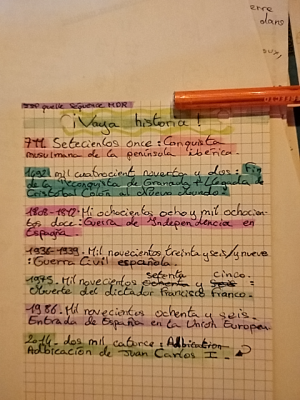 erre
dans
¡Vaya historia!
711. Setecientos once : Conquista
musulmana de la península ibérica.
1492. mil cuatrocient noventa y dos : Fin
de la Reconquista de Granada + Llegada de
Cristobal Colón al Nuevo Mundo.
1808-1812. Mi ochocientos ocho y mil ochocien-
tos doce : Guerra de Independencia en
España
1936-1939. Mil novecientos treinta y seis/y nueve
: Guerra Civil española.
setenta cinco.
1975. Mil novecientos ochenta y seis :
Muerte del dictador Francisco Franco.
1986. Mil novecientos ochenta y seis.
Entrada de España en la Unión Europea
2014. dos mil catorce : Adbication
Adbicación de Juan Carlos I.